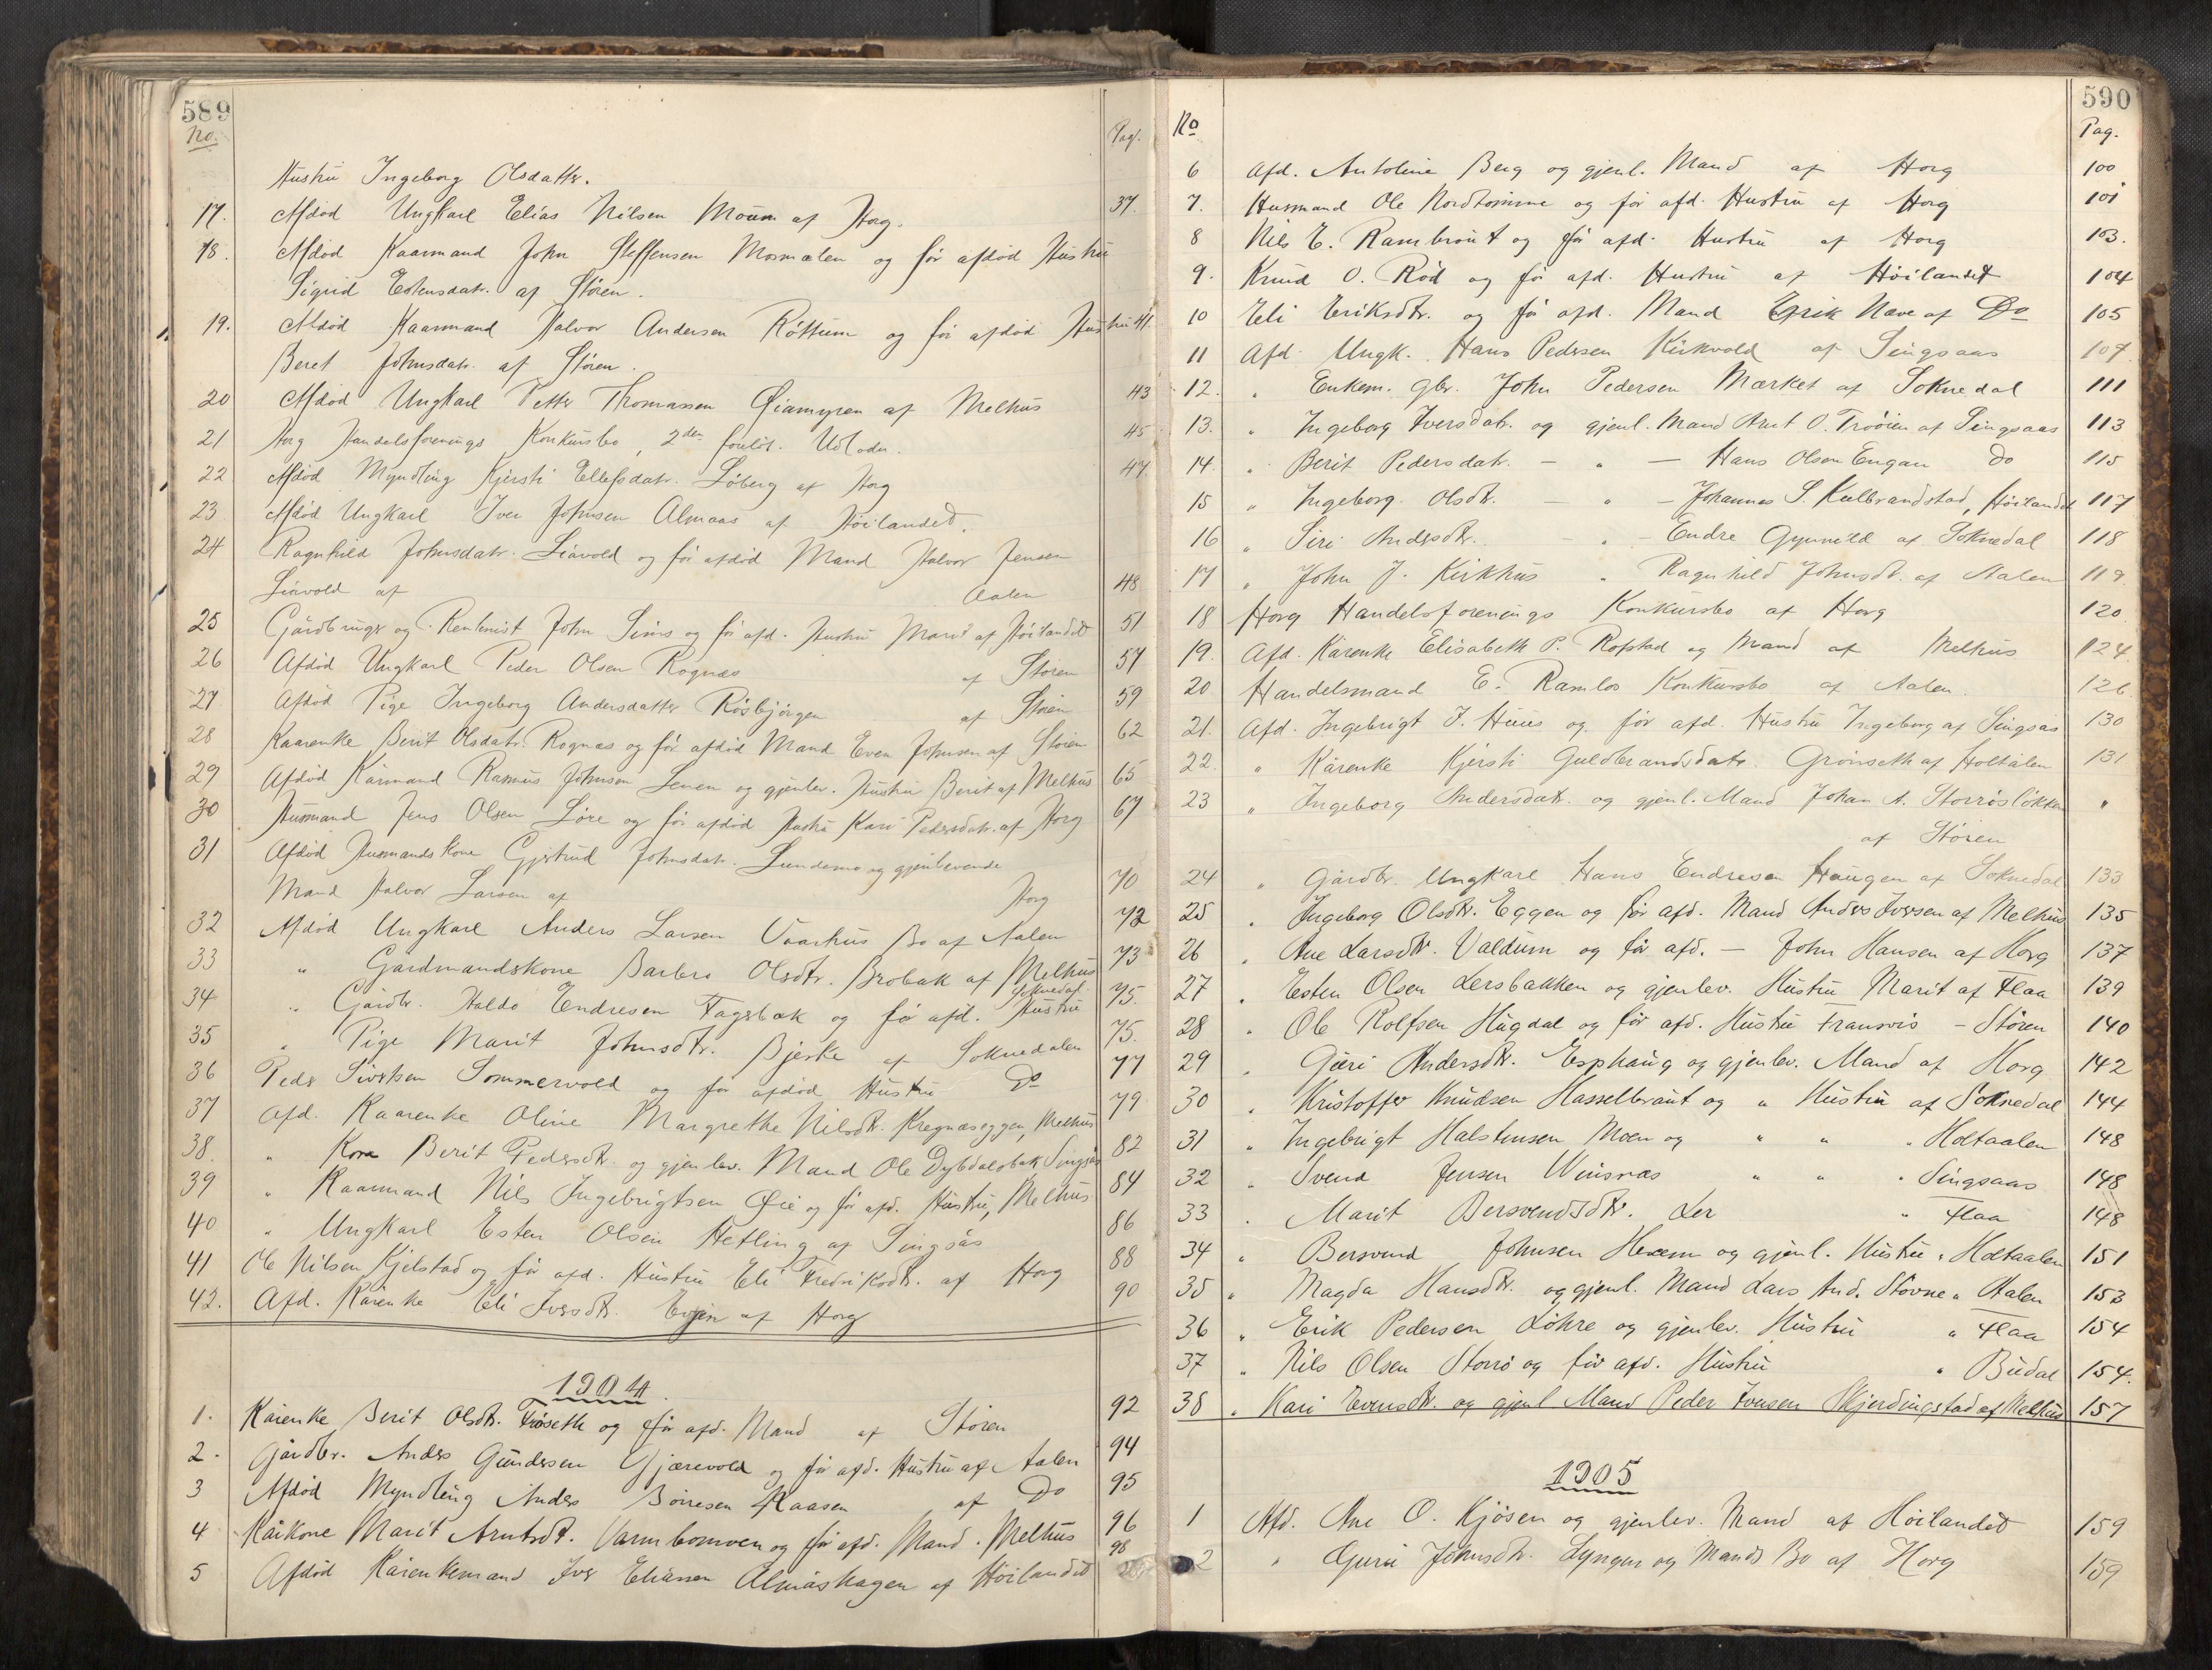 589
No. Pag.
Hustru Ingeborg Olsdatter.
17. Afdød Ungkarl Elias Nilsen Moum af Horg. 37.
18. Afdød Kaarmand John Steffensen Mosmælen og før afdød Hustru
Sigrid Estensdatr. af Støren.
19. Afdød Kaarmand Halvor Andersen Røttum og før afdød Hustru 41.
Beret Johnsdatr. af Støren.
20 Afdød Ungkarl Petter Thomassen Øiamyren af Melhus 43
21 Horg Handelsforenings Konkursbo, 2den foreløb. Udlodn. 45
22 Afdød Myndling Kjersti Ellefsdatr. Løberg af Horg 47.
23 Afdød Ungkarl Iver Johnsen Almaas af Høilandet.
24 Ragnhild Johnsdatr. Liavold og før afdød Mand Halvor Jensen
Liavold af Aalen 48
25 Gårdbruger og Rentenist John Sims og før afd. Hustru Marit af Høilandet 51
26 Afdød Ungkarl Peder Olsen Rognæs af Støren 57
27 Afdød Pige Ingeborg Andersdatter Røsbjørgen af Støren 59
28 Kaarenke Berit Olsdatr. Rognæs og før afdød Mand Even Johnsen af Støren 62
29 Afdød Kårmand Rasmus Johnsen Lenen og gjenlev. Hustru Berit af Melhus 65
30 Husmand Jens Olsen Løre og før afdød Hustru Kari Pedersdatr. af Horg 67
31 Afdød Husmandskone Gjertrud Johnsdatr. Lundemo og gjenlevende
Mand Halvor Larsen af Horg 70
32 Afdød Ungkarl Anders Larsen Vaarhus Bo af Aalen 72
33 " Gårdmandskone Barbro Olsdtr. Brobak af Melhus 73
34 " Gårdbr. Haldo Endresen Fagerbak og før afd. Hustru Soknedal 75.
35 " Pige Marit Johnsdtr. Bjerke af Soknedalen 75.
36 Peder Sivertsen Sommervold og før afdød Hustru Do 77
37 Afd. Kaarenke Oline Margrethe Nilsdtr. Kregnæseggen, Melhus 79
38. " Kone Berit Pedersdtr. og gjenlev. Mand Ole Dybdalsbak Singsås 82
39 " Kaarmand Nils Ingebrigtsen Øie og før afd. Hustru, Melhus 84
40 " Ungkarl Esten Olsen Hetling af Singsås 86
41 Ole Nilsen Kjelstad og før afd. Hustru Eli Fredriksdtr. af Horg 88
42. Afd. Kårenke Eli Iversdtr. Evjen af Horg 90
1904.
1. Kårenke Berit Olsdtr. Frøseth og før afd. Mand af Støren 92
2. Gårdbr. Anders Gundersen Gjærevold og før afd. Hustru af Aalen 94
3 Afdød Myndling Anders Børresen Haasen af Do 95
4 Kårkone Marit Arntsdt. Varmbomoen og før afd. Mand. Melhus 96
5 Afdød Kårenkemand Iver Eliassen Almåshagen af Høilandet 98
590
No Pag.
6 Afd. Antoline Berg og gjenl. Mand af Horg 100
7. Husmand Ole Nordtømme og før afd. Hustru af Horg 101
8 Nils E. Rambraut og før afd. Hustru af Horg 103.
9. Knud O. Rød og før afd. Hustru af Høilandet 104
10 Eli Eriksdtr. og før afd. Mand Erik Næve af Do 105
11 Afd. Ungk. Hans Pedersen Kirkvold af Singsaas 107.
12. " Enkem. gbr. John Pedersen Mærket af Soknedal 111
13. " Ingeborg Iversdatr. og gjenl. Mand Arnt O. Trøøien af Singsaas 113
14. " Berit Pedersdatr. — " — Hans Olsen Engan Do 115
15 " Ingeborg Olsdtr. — " — Johannes S. Kulbrandstad, Høilandet 117
16 " Siri Andersdtr. — " — Endre Gynnild af Soknedal 118
17 " John J. Kirkhus " Ragnhild Johnsdt. af Aalen 119.
18 Horg Handelsforenings Konkursbo af Horg 120
19. Afd. Kårenke Elisabeth P. Rofstad og Mand af Melhus 124.
20 Handelsmand E. Ramlos Konkursbo af Aalen. 126.
21. Afd. Ingebrigt I. Huus og før afd. Hustru Ingeborg af Singsas 130
22. " Kårenke Kjersti Guldbrandsdatr. Grønseth af Holtålen 131
23 " Ingeborg Andersdatr. og gjenl. Mand Johan A. Storrøsløkken "
af Støren
24 " Gårdbr. Ungkarl Hans Endresen Haugen af Soknedal 133
25 " Ingeborg Olsdtr. Eggen og før afd. Mand Anders Iversen af Melhus 135
26 " Ane Larsdtr. Valdum og før afd. — John Hansen af Horg 137
27 " Esten Olsen Lersbakken og gjenlev. Hustru Marit af Flaa 139
28 " Ole Rolfsen Hugdal og før afd. Hustru Fransvis - Støren 140
29 " Guri Andersdtr. Esphaug og gjenlev. Mand af Horg 142
30 " Kristoffer Knudsen Hasselbraut og " Hustru af Soknedal 144
31 " Ingebrigt Halstensen Moen og " " " Holtaalen 148
32 " Svend Jensen Winsnæs " " " Singsaas 148
33 " Marit Bersvendsdtr. Ler " Flaa 148
34 " Bersvend Johnsen Hexem og gjenl. Hustru " Holtaalen 151
35 " Magda Hansdtr. og gjenl. Mand Lars And. Støvne " Aalen 153
36 " Erik Pedersen Løhre og gjenlev. Hustru " Flaa 154
37 " Nils Olsen Storrø og før afd. Hustru " Budal 154.
38 " Kari Evensdtr. og gjenl Mand Peder Iversen Skjerdingstad af Melhus 157
1905
1 Afd. Ane O. Kjøsen og gjenlev. Mand af Høilandet 159
2 " Guru Johnsdtr. Lyngen og Mands Bo af Horg 159